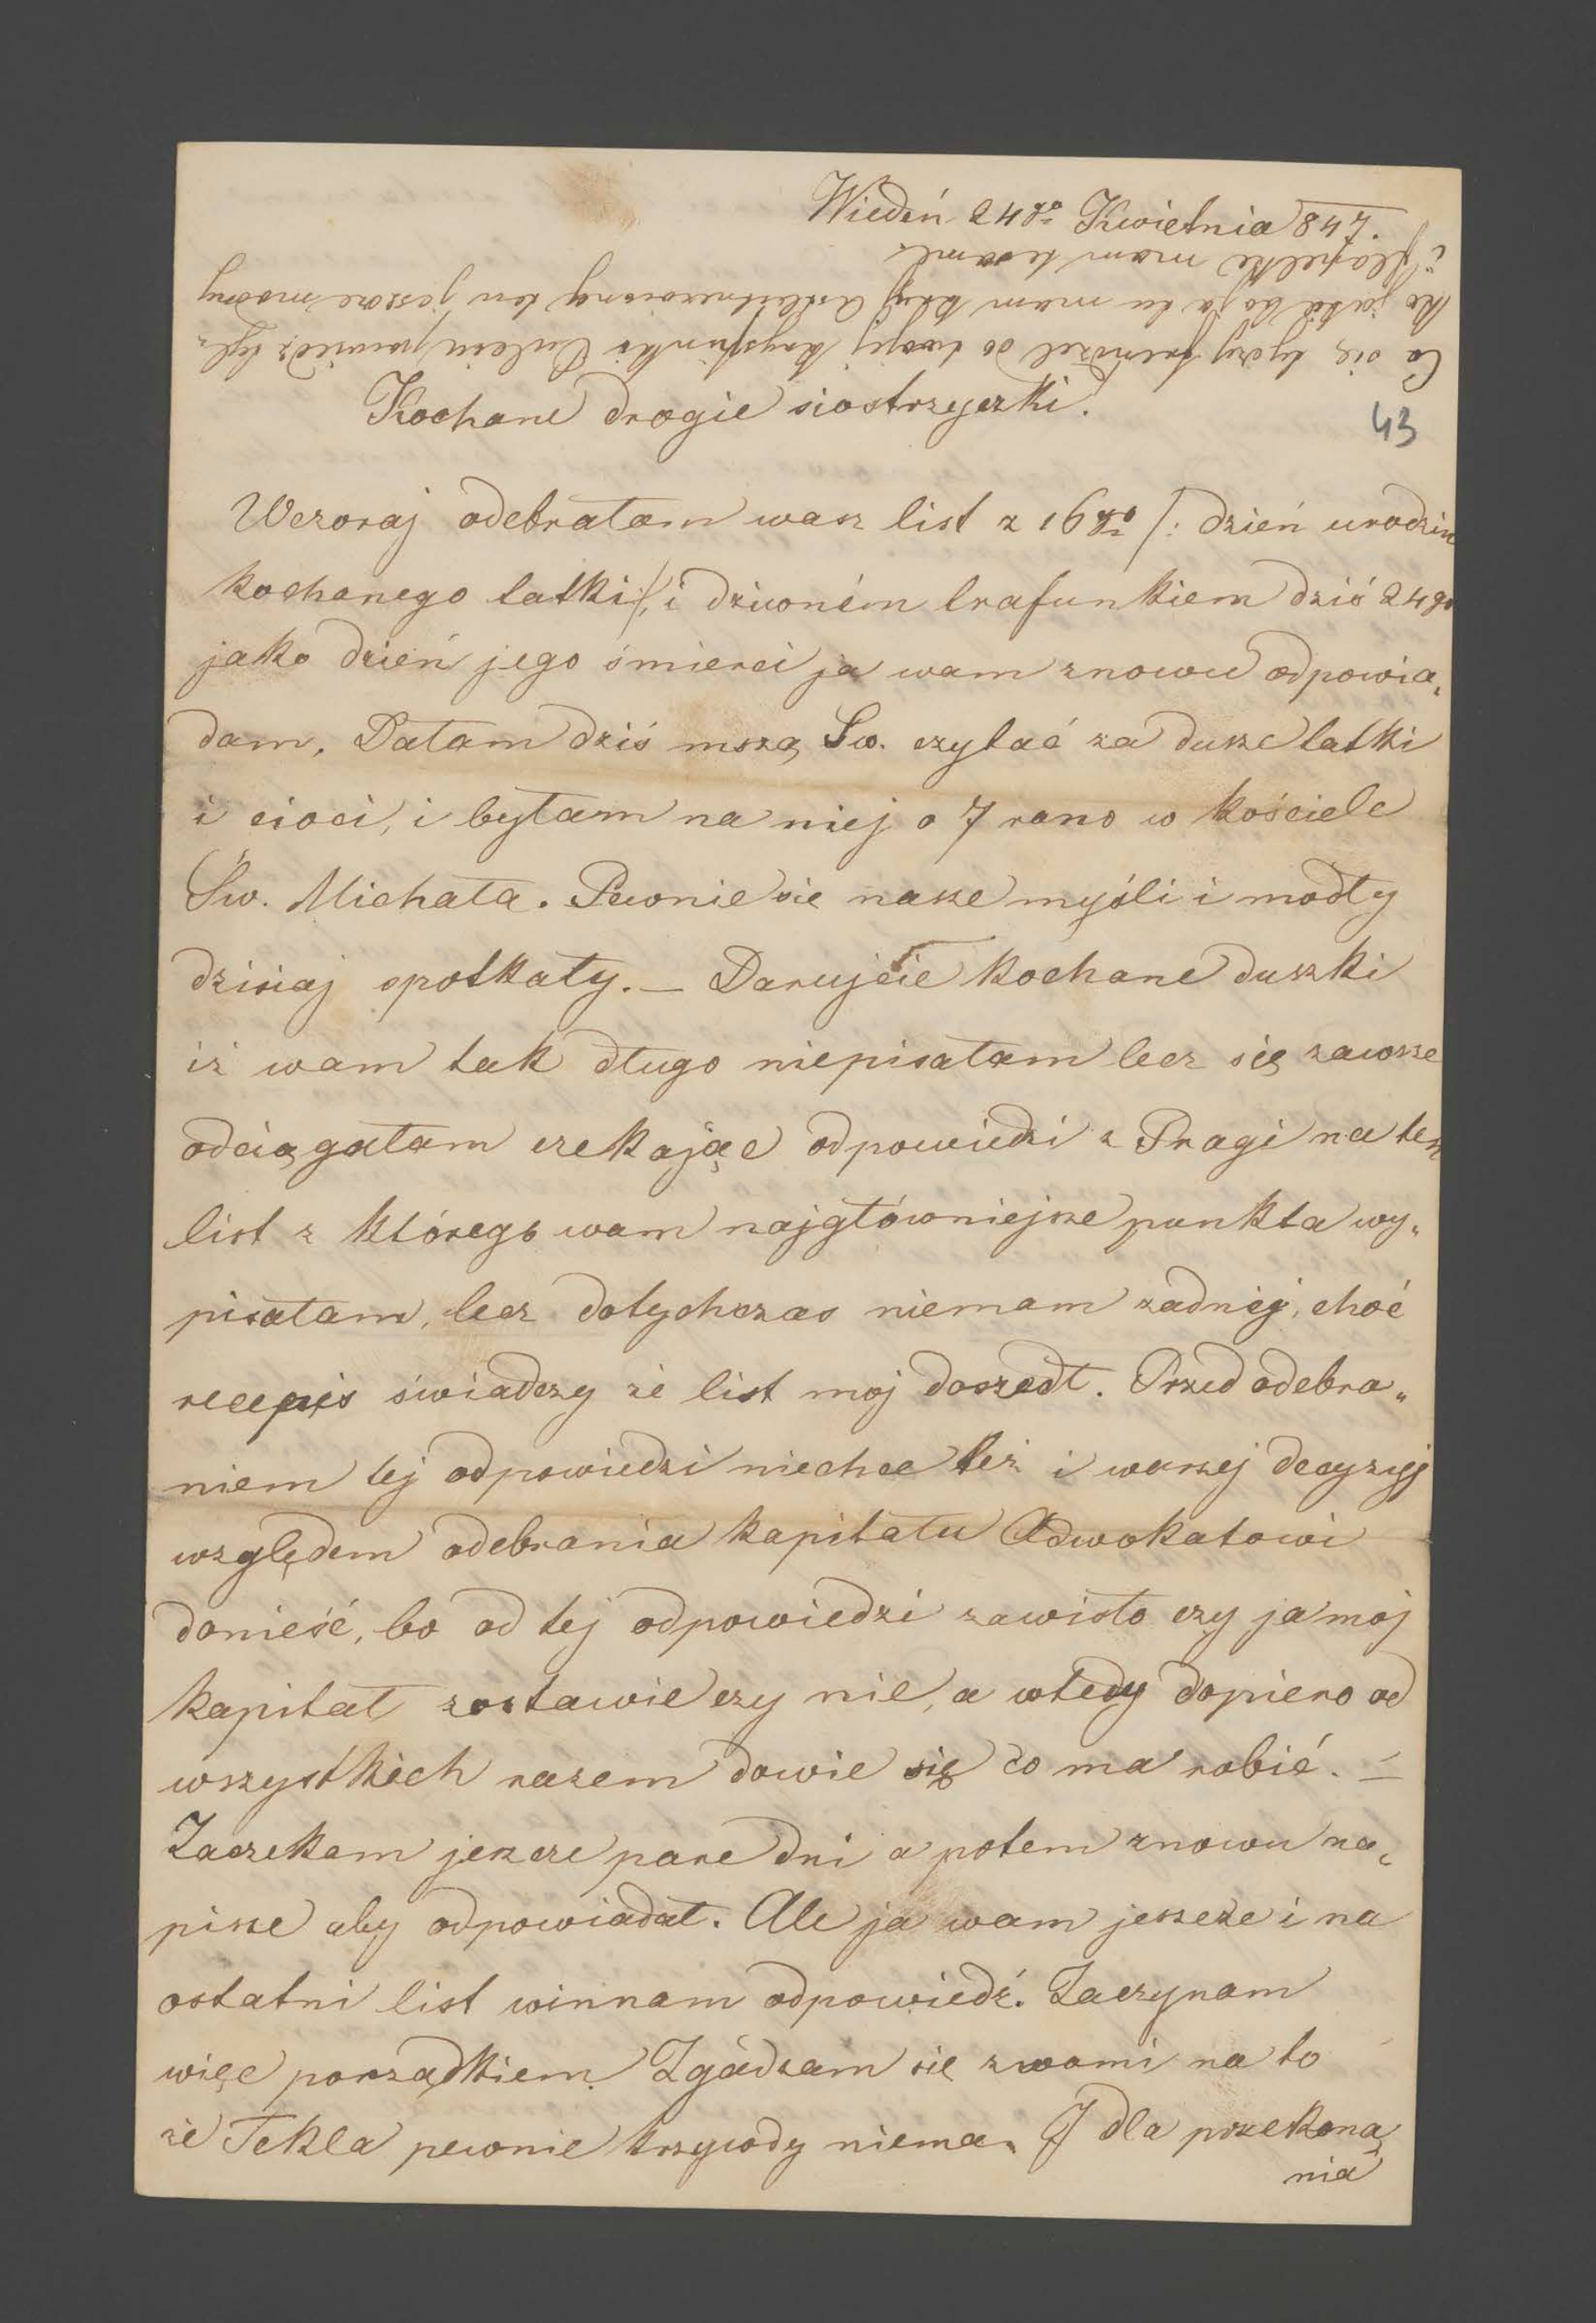 Wiedeń 24go Kwietnia 847.
Co się tyczy frendzel do twojej
i mam te same
Kochane drogie siostrzyczki!
43
Wczoraj odebrałam wasz list z 16go /: dzień urodzin
kochanego tatki :/, i dziwném trafunkiem dziś 24go
jako dzień jego śmierci ja wam znowu odpowia„
dam. Dałam dziś mszą Św. czytać za dusze tatki
i cioci, i byłam na niej o 7 rano w kościele
Św. Michała. Pewnie sie nasze myśli i modły
dzisiaj spotkały. — Darujcie kochane duszki
iż wam tak długo niepisałam lecz się zawsze
odciągałam czekając odpowiedzi z Pragi na ten
list z którego wam najgłówniejsze punkta wy„
pisałam, lecz dotychczas niemam żadnéj, choć
recepis świadczy że list moj doszedł. Przed odebra„
niem tej odpowiedzi niechce też i waszej decyzyj
względem odebrania kapitału Adwokatowi
donieść, bo od tej odpowiedzi zawisło czy ja moj
kapitał zostawie czy nie, a wtedy dopiero od
wszystkich razem dowie się co ma robić. —
Zaczekam jeszcze pare dni a potem znowu na„
pisze aby odpowiadał. Ale ja wam jeszcze i na
ostatni list winnam odpowiedź. Zaczynam
więc porządkiem. Zgádzam się z wami na to
że Tekla pewnie krzywdy niema. I dla przekona„
nia